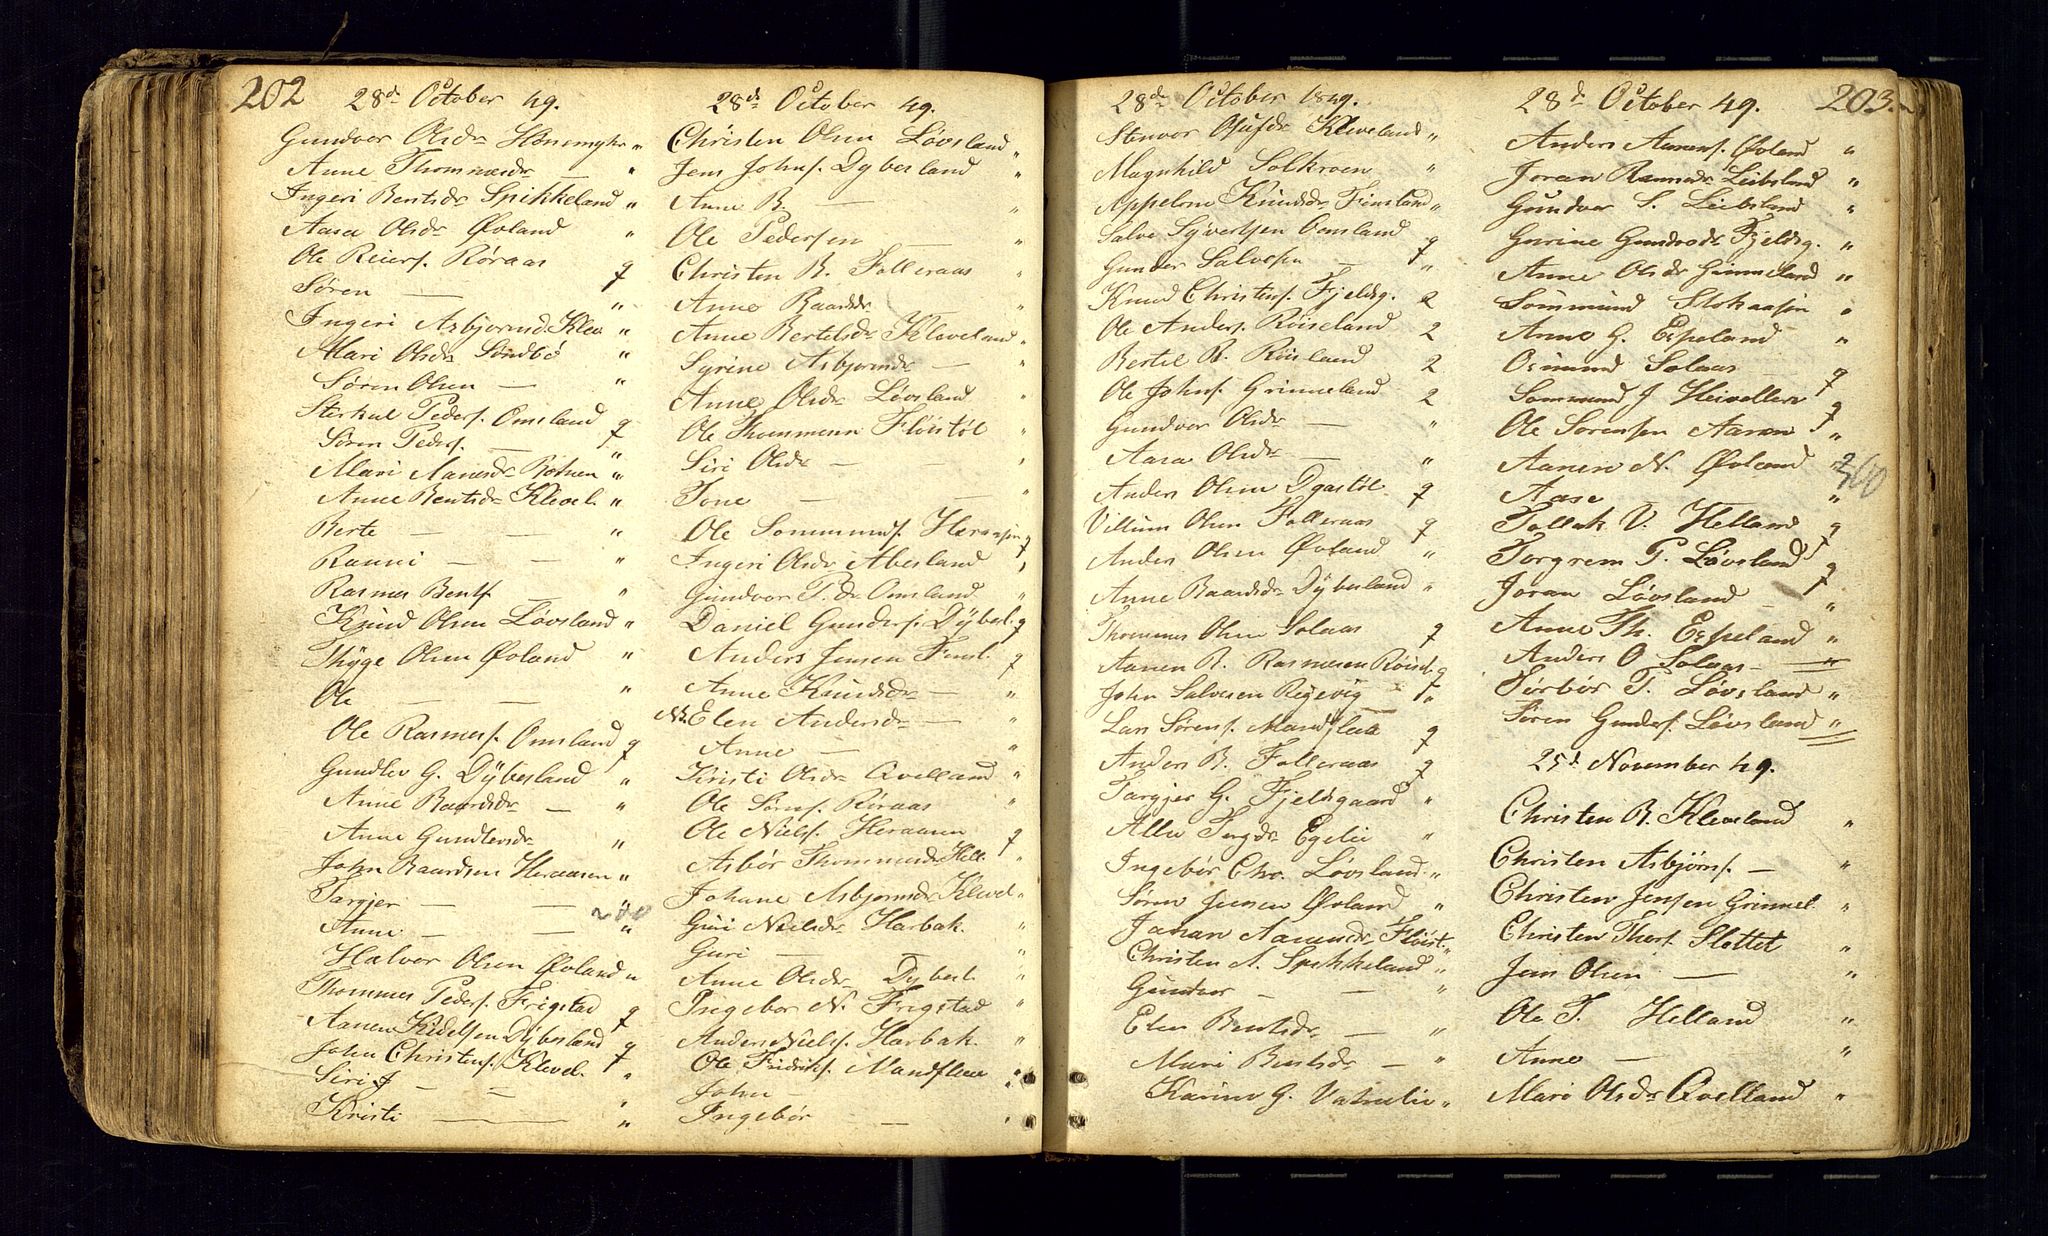 202
28d October 49.
Gundvor Olsdr Hønemyhr "
Anne Thommesdr — "
Ingeri Bentsdr Spikkeland "
Aasa Olsdr Øvland "
Ole Reiers. Røraas g
Søren — "
Ingeri Asbjornsd Klev "
Mari Olsdr Sindbø "
Søren Olsen — "
Sterkul Peders. Omland g
Søren Peders. — "
Mari Aanesdr Botnen "
Anne Bentsdr Klevel. "
Berte — — "
Ranni — — "
Rasmus Bents. — "
Knud Olsen Løvsland "
Thyge Olsen Øvland "
Ole — — "
Ole Rasmuss. Omsland g
Gundlev G. Dÿbesland "
Anne Baardsdr — "
Anne Gundlevsdr "
John Baardsen Heraasen "
Targjer — — " 200
Anne — — "
Halvor Olsen Øvland "
Thommes Peders. Frigstad g
Aanen Kidelsen Dÿbesland g
John Christens. Klevel. "
Siri J — — "
Kristi — "
28de October 49.
Christen Olsen Løvsland "
Jens Johns. Dybesland "
Anne B. — "
Ole Pedersen — "
Christen B. Folleraas "
Anne Baardsdr "
Anne Bertelsdr Kleveland "
Syrine Asbjornsdr — "
Anne Olsdr Løvsland "
Ole Thommesen Fløistøl "
Siri Olsdr — — "
Tone — — "
Ole Sommunds. g
Ingeri Olsdr Abesland "
Gundvor T. dr Omsland "
Daniel Gunders. Dÿbesl. g
Anders Jensen Finsl. g
Anne Knudsdr — "
NB. Elen Andersdr — "
Anne — "
Kristi Olsdr Qvelland "
Ole Sørens. Røraas "
Ole Niels. Heraasen g
Asbør Thommesdr Hell. "
Johane Asbjornsdr Klevel "
Guri Nielsdr Harbak. "
Guri — — "
Anne Olsdr Dybesl. "
Ingebor N. Frigstad "
Anders Niels. Harbak. "
Ole Fredriks. Mandflaa "
John — "
Ingebør — "
28de October 1849.
Stenvor Olufsdr Kleveland "
Magnhild Solkroen "
Appelone Knudsdr Finsland "
Salve Syvertsen Omsland g
Gunder Salvesen — "
Knud Christens. Fjeldsg. 2
Ole Anders. Røiseland 2
Bertel R. Røisland 2
Ole Johns. Grimeland 2
Gundvor Olsdr — "
Aasa Olsdr — "
Anders Olsen g
Villum Olsen Folleraas g
Anders Olsen Øvland "
Anne Baardsdr Dÿbesland "
Thommes Olsen Solaas g
Aanen R. Rasmusen Røisel. g
John Salvesen Regevig — "
Lars Sørens. Mandflaa g
Anders B. Folleraas g
Targjer G. Fjeldsgaard "
Egelie "
Ingebør Chr. Løvsland "
Søren Jensen Øvland "
Joran Aanensdr Fløist. "
Christen A. Spikkeland "
Gundvor — — "
Elen Bentsdr — "
Mari Bentsdr — "
Karine G. Vatnelie "
28d October 49. 203.
Anders Aanens. Øvland "
Joran Rasmusdr Leibsland "
Gundvor S. Leibsland "
Gurine Gundvodr Fjeldsg. "
Anne Olsdr Grimeland "
Sommund "
Anne G. Espeland "
Osmund Solaas — g
Sommund J Heivollen g
Ole Sorensen Aanen "
Aanen N. Øvland " 300
Aase "
Tollak V. Helland g
Torgrem P. Løvsland g
Joran Løvsland — "
Anne Th. Espeland "
Anders O Solaas — "
Torbør T. Løvsland "
Søren Gunders. Løvsland "
25d November 49.
Christen B. Kleveland "
Christen Asbjørns. — "
Christen Jensen Grimel. "
Christen Thors. Slottet "
Jens Olsen — "
Ole T. Helland "
Anne — "
Mari Olsdr Qvelland "